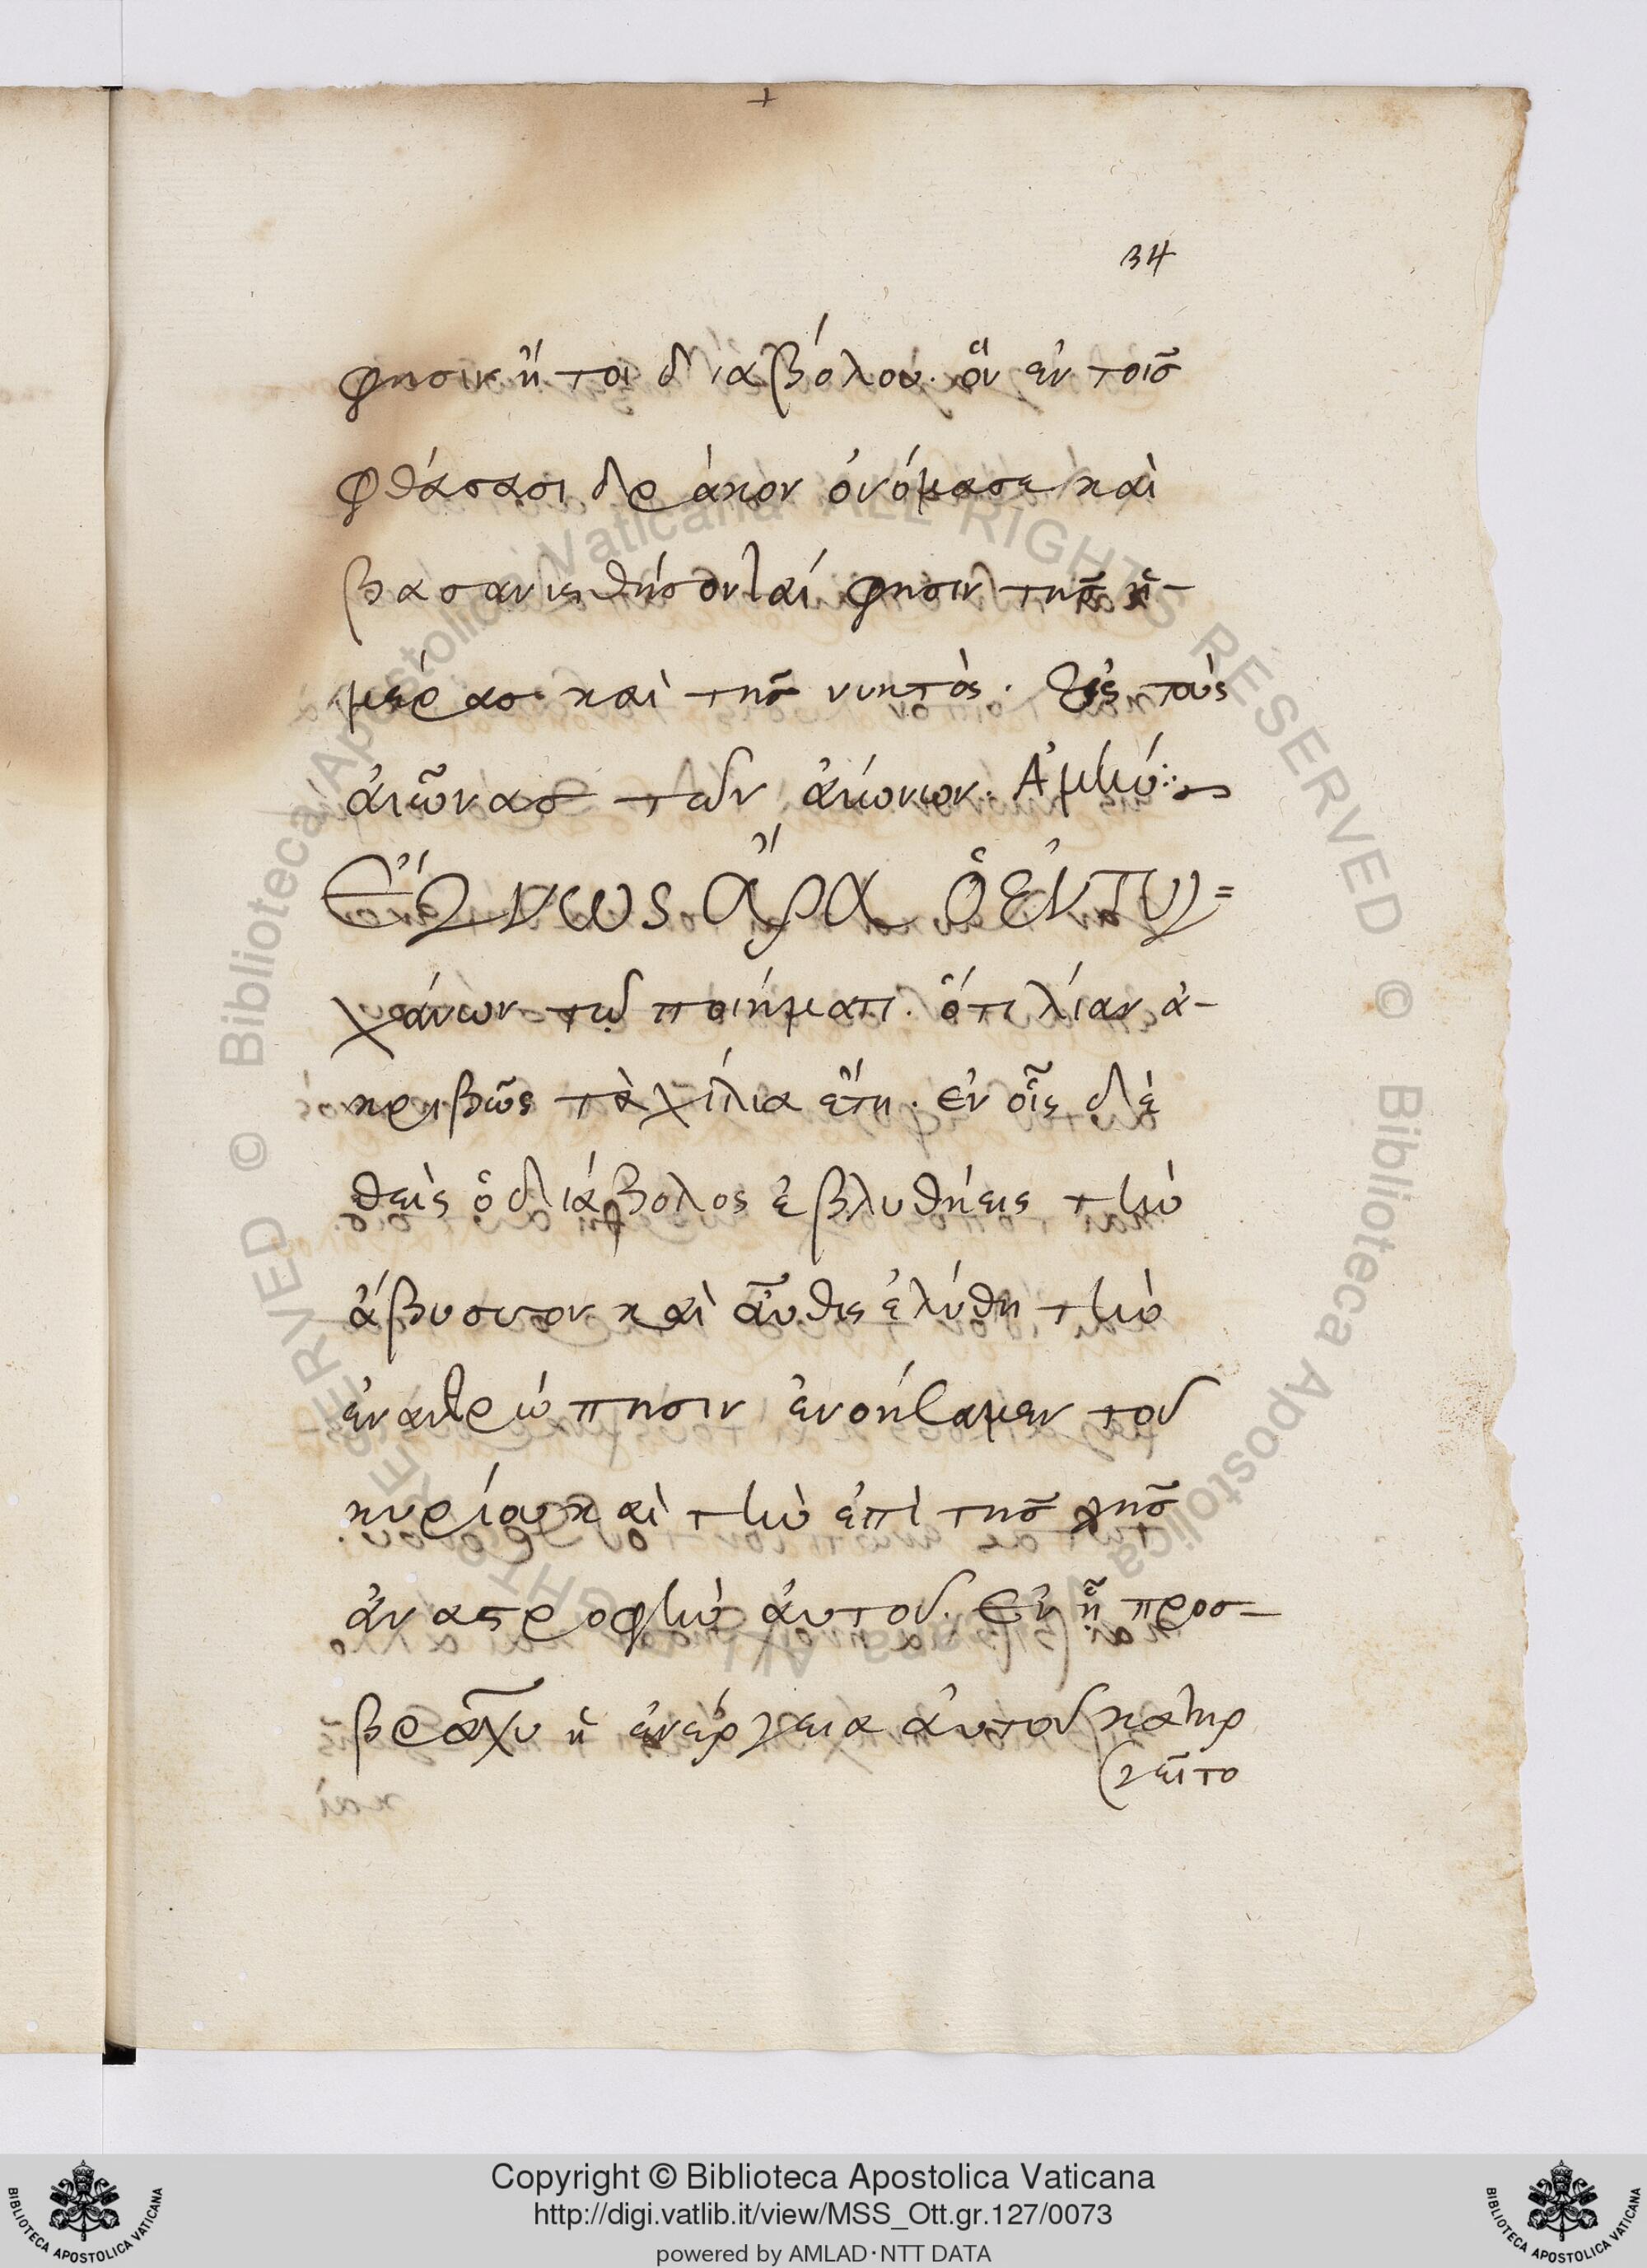 34
φησιν ἤτοι διαβόλου. ὃν ἐν τοῖσ
φθάσασι δράκον ὀνόμασε καὶ
βασανισθήσονταί φησιν τῆσ ἡ-
μέρασ καὶ τῆσ νυκτὸς. Εἰς τοὺς
ἀιῶνασ τῶν ἀιώνων. Ἀμὴν:~
Ἔγνως ἄρα ὁ ἐντυγ=
χάνων τῷ ποιήματι. ὅτι λίαν ἀ-
κριβῶς τὰ χίλια ἔτη. ἐν οἷς δὲ
θεὶς ὁ διάβολος ἐβλυθήεις τὴν
ἄβυσσον καὶ ἆυθις ἐλύθη τὴν
ἐνανθρώπησιν ἐνοήσαμεν τοῦ
κυρίου καὶ τὴν ἐπὶ τῆσ γῆσ
ἀναστροφὴν ἀυτοῦ. Ἐν ᾗ προσ-
βραχυ ἡ ἐνέργεια ἀυτοῦ κατηρ
γεῖτο
Copyright © Biblioteca Apostolica Vaticana
http://digi.vatlib.it/view/MSS_Ott.gr.127/0073
powered by AMLAD·NTT DATA
BIBLIOTECA APOSTOLICA VATICANA
BIBLIOTECA APOSTOLICA VATICANA